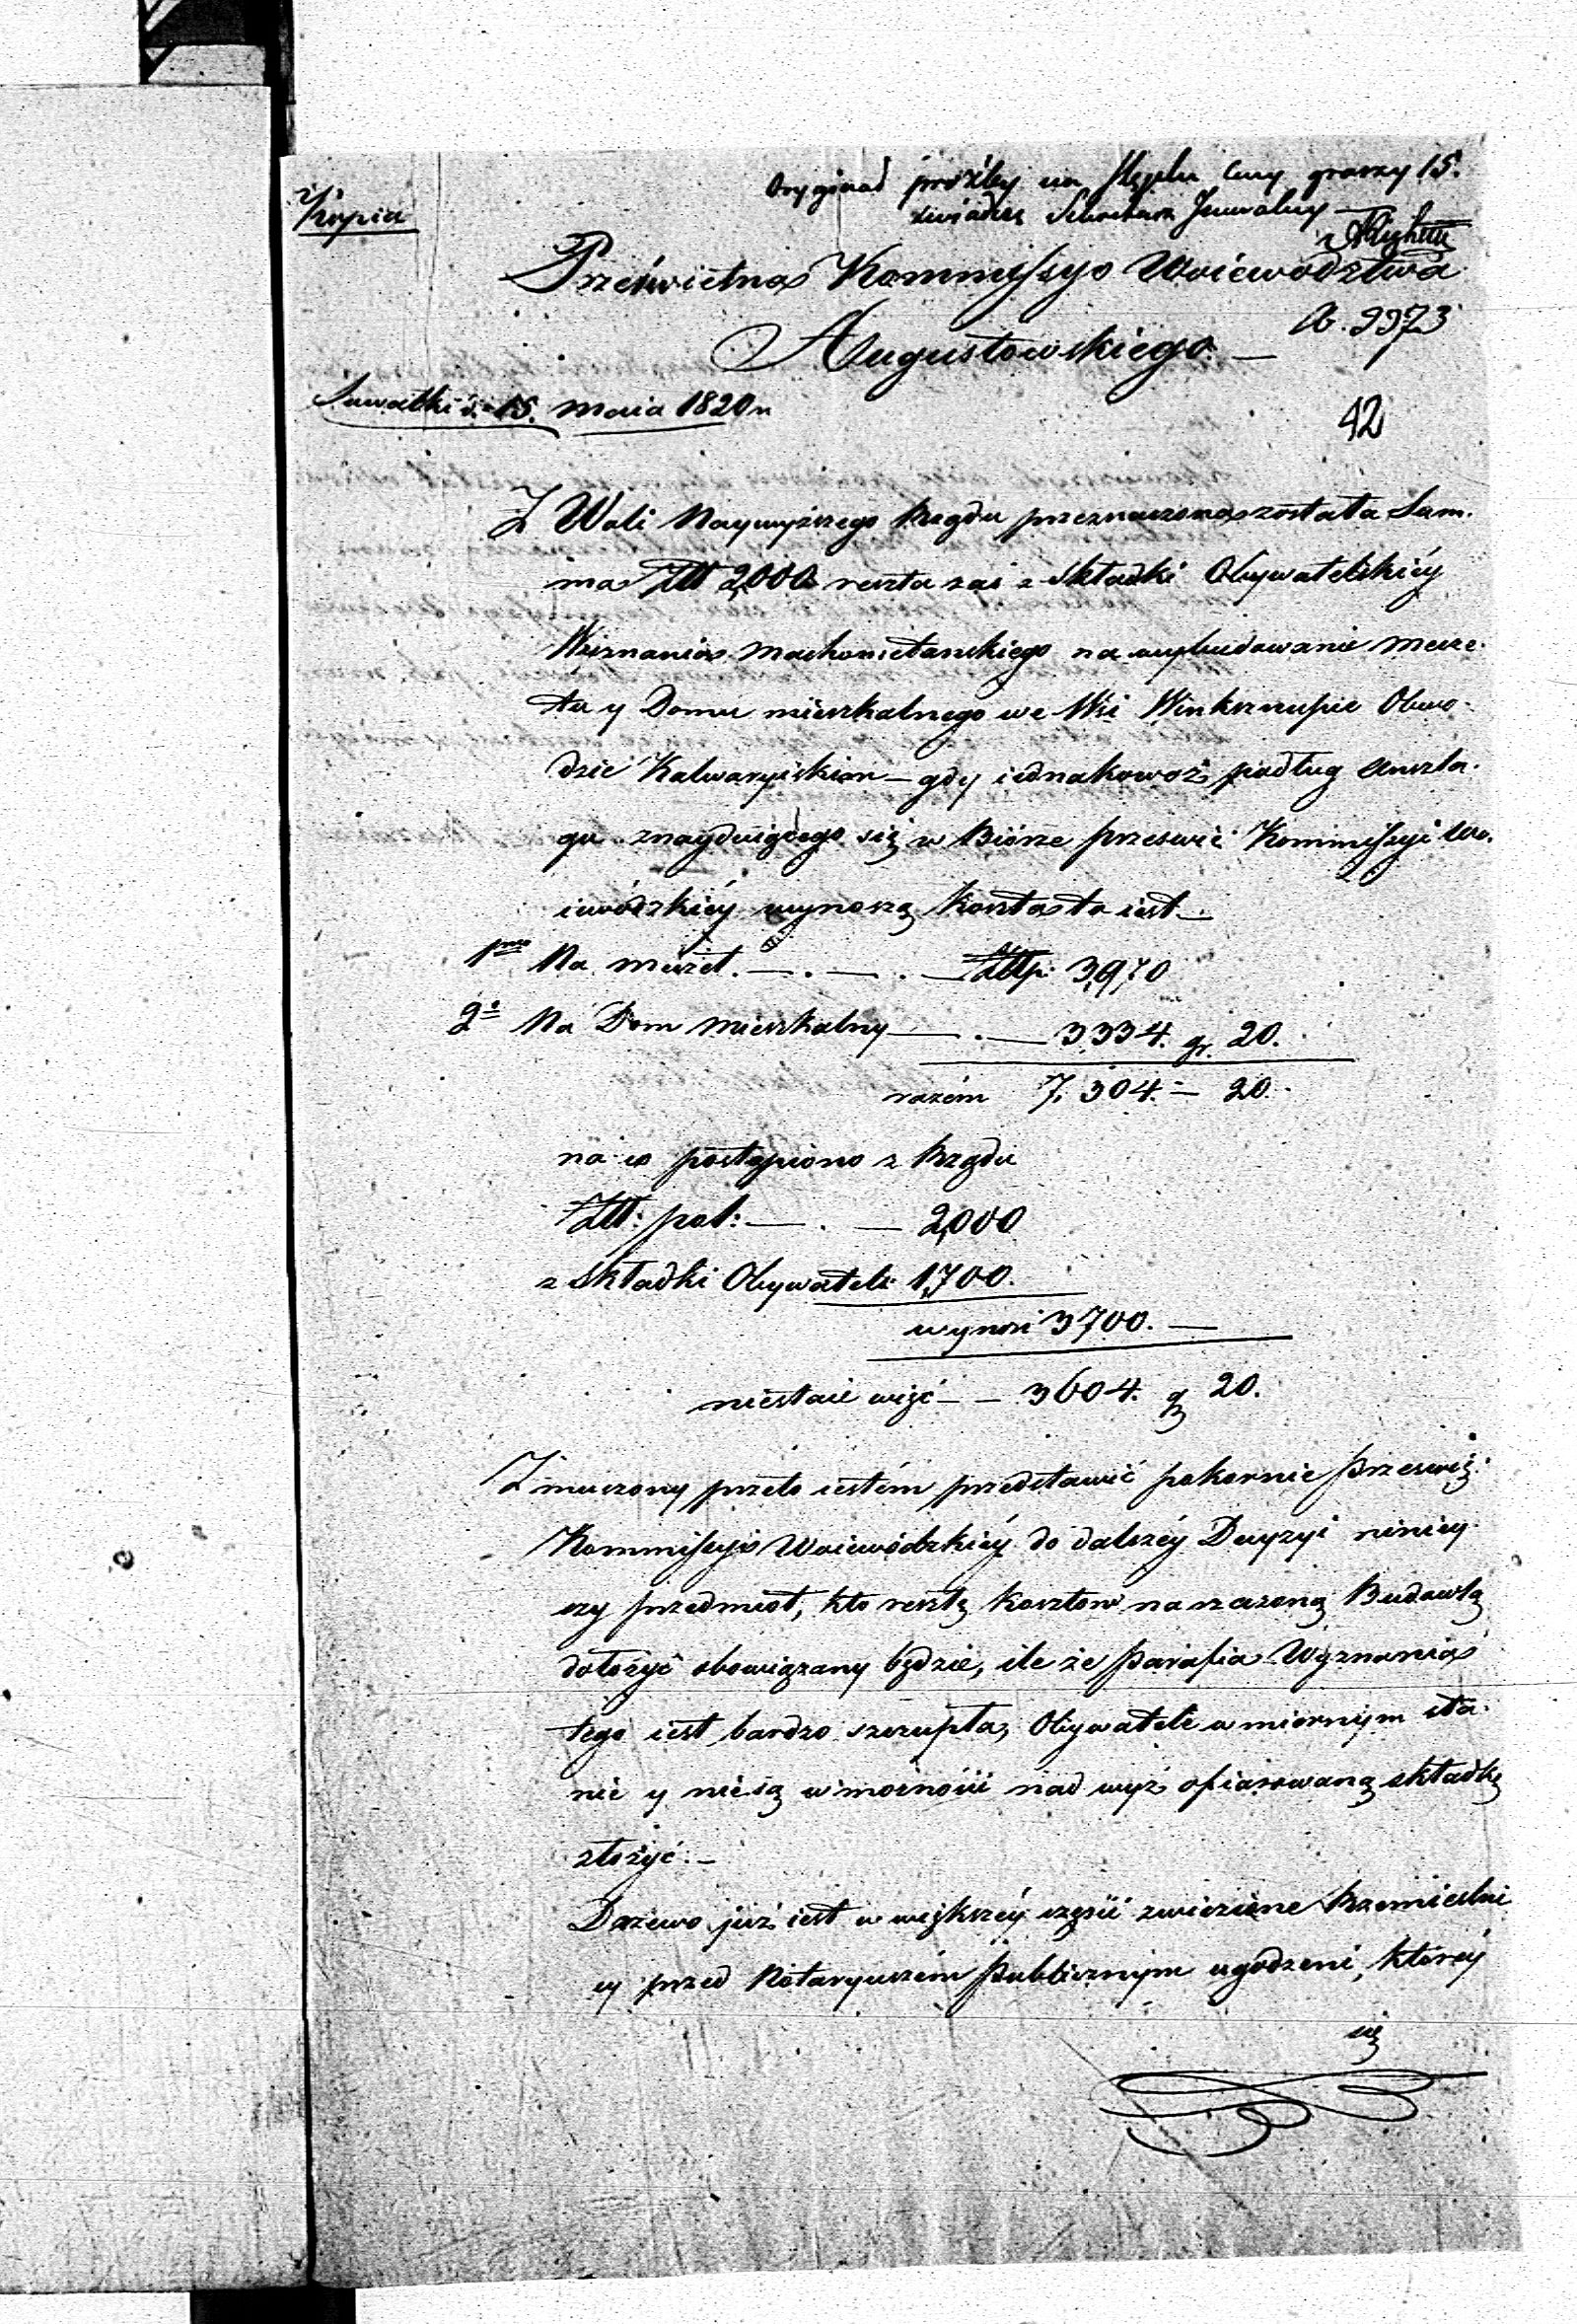 Kopia
Oryginał proźby na stęplu Ceny groszy 15.
świadczę Sekretarz Jeneralny
Prześwietna Kommissyo Woiewodztwa
N. 9973
Augustowskiego. —
Suwałki d. 15. Maia 1820 r.
42
Z Woli Naywyższego Rządu przeznaczona została Sum-
ma Złł 2,000 reszta zaś z składki Obywatelskiéy
Wyznania Machometanskiego na wybudowanie mecze-
tu y Domu mieszkalnego we Wsi Winksznupie Obwo-
dzie Kalwaryiskim — gdy iednakowoż podług Anszla-
gu znayduiącego się w Biórze prześwie: Kommissyi Wo-
iewódzkiéy wynoszą koszta to iest —
1mo Na meczet. — . — . — Złłp: 3,970
2o Na Dom mieszkalny — . — 3334. gr. 20.
razem 7,304. — 20.
na co postąpiono z Rządu
Złł: pol: — . — 2,000
z składki Obywatels: 1,700.
wynosi 3700. —
niestaie więc — — 3604. gr 20.
Zmuszony przeto iestem przedstawić pokornie prześwię:
Kommissyi Woiewódzkiéy do dalszéy Decyzyi niniey-
szy przedmiot, kto resztę kosztow na rzeczoną Budowlą
dołożyć obowiązany będzie, ile że parafia Wyznania
tego iest bardzo szczupła, Obywatele w miernym sta-
nie y nie są w możności nad wyż ofiarowaną składkę
złożyć. —
Drzewo już iest w większéy części zwiezione Rzemieślni
cy przed Notaryuszem publicznym ugodzeni, któréy
się